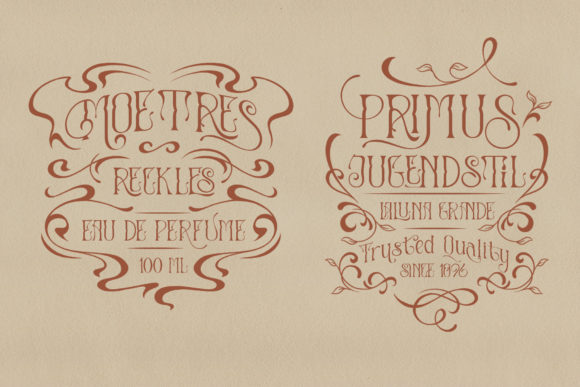 MOETTRES
RECKLES
EAU DE PERFUME
100 ML
PRIMUS
JUGENDSTiL
LALUNA GRANDE
Trusted Quality
SINCE